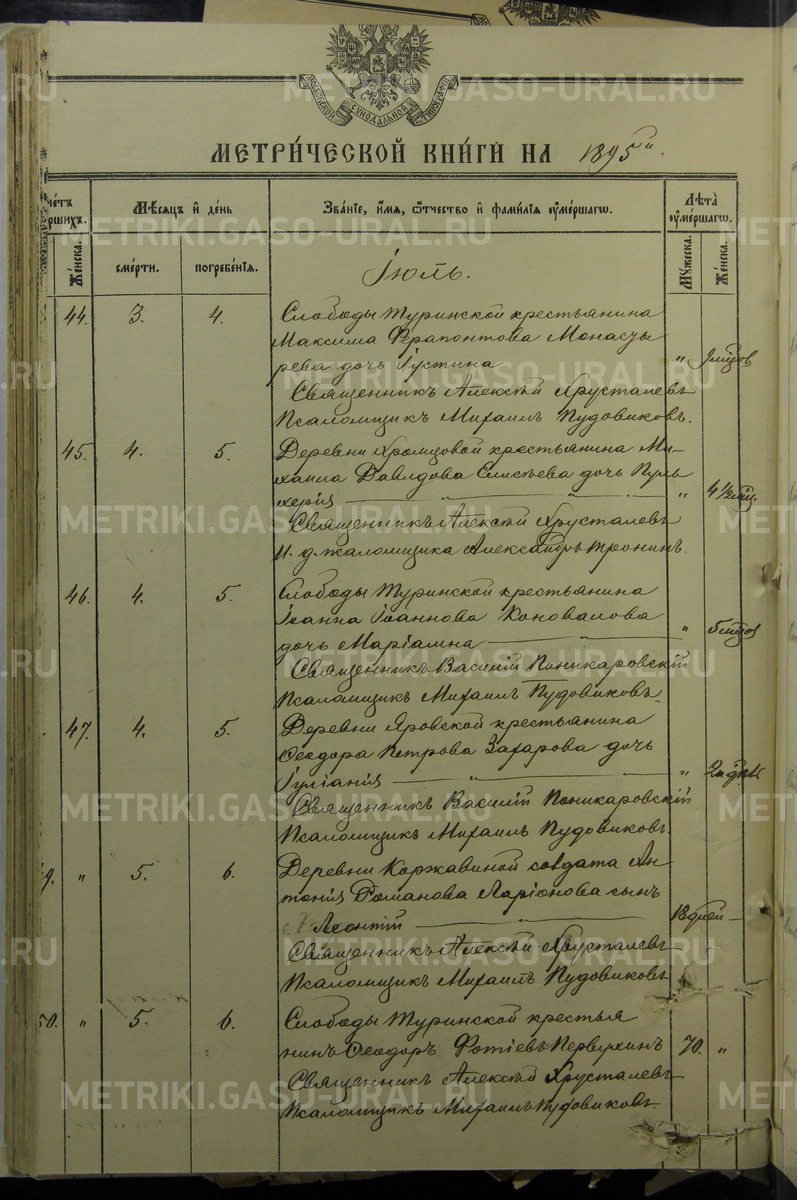 МОСКОВСКОЙ СѴНОДАЛЬНОЙ ТИПОГРАФІИ
МЕТРИ́ЧЕСКОЙ КНИ́ГИ НА 1895й.
чéтъ
рших.
Мѣсяцъ и де́нь
Зва́нїе, и́мя, ѻ҆́тчество и҆ фами́лїя ᲂу҆ме́ршагѡ.
Лѣта̀
ᲂу҆ме́ршагѡ.
Же́нска.
сме́рти.
погребе́нїя.
Мꙋ́жеска.
Же́нска.
Іюль.
44. 3. 4. Слободы Туринской крестьянина
Максима Ѳерапонтова Монасты
рева дочь Іустина " 9 мцов
Священникъ Алексѣй Хрусталевъ
Псаломщикъ Михаилъ Пудовиковъ.
45. 4. 5. Деревни Хромцовой крестьянина Ми-
хаила Давидова Елисѣева дочь Пуль
херія — " — " — " 4 1/2 мц.
Священникъ Алексѣй Хрусталевъ
И. д. псаломщика Александръ Тронинъ.
46. 4. 5. Слободы Туринской крестьянина
Іоанна Іоаннова Коновалова
дочь Маріамна — " — " 5 мцов
Священникъ Василій Поникаровскій
Псаломщикъ Михаилъ Пудовиковъ.
47. 4. 5. Деревни Яровской крестьянина
Ѳеодора Петрова Захарова дочь
Іуліанія — " — " 2 н дѣль
Священникъ Василій Поникаровскій
Псаломщикъ Михаилъ Пудовиковъ.
9. " 5. 6. Деревни Коржавиной солдата Ан
тонія Романова Ларіонова сынъ
Леонтій — " — 18 дней —
Священникъ Алексѣй Хрусталевъ
Псаломщикъ Михаилъ Пудовиковъ
50. " 5. 6. Слободы Туринской крестья
нинъ Ѳеодоръ Фотіевъ Первухинъ 70. "
Священникъ Алексѣй Хрусталевъ
Псаломщикъ Михаилъ Пудовиковъ.
METRIKI.GASO-URAL.RU